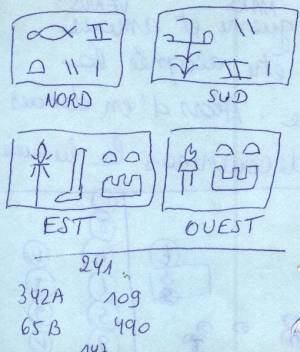 NORD SUD
EST OUEST
241
342A 109
65B 490